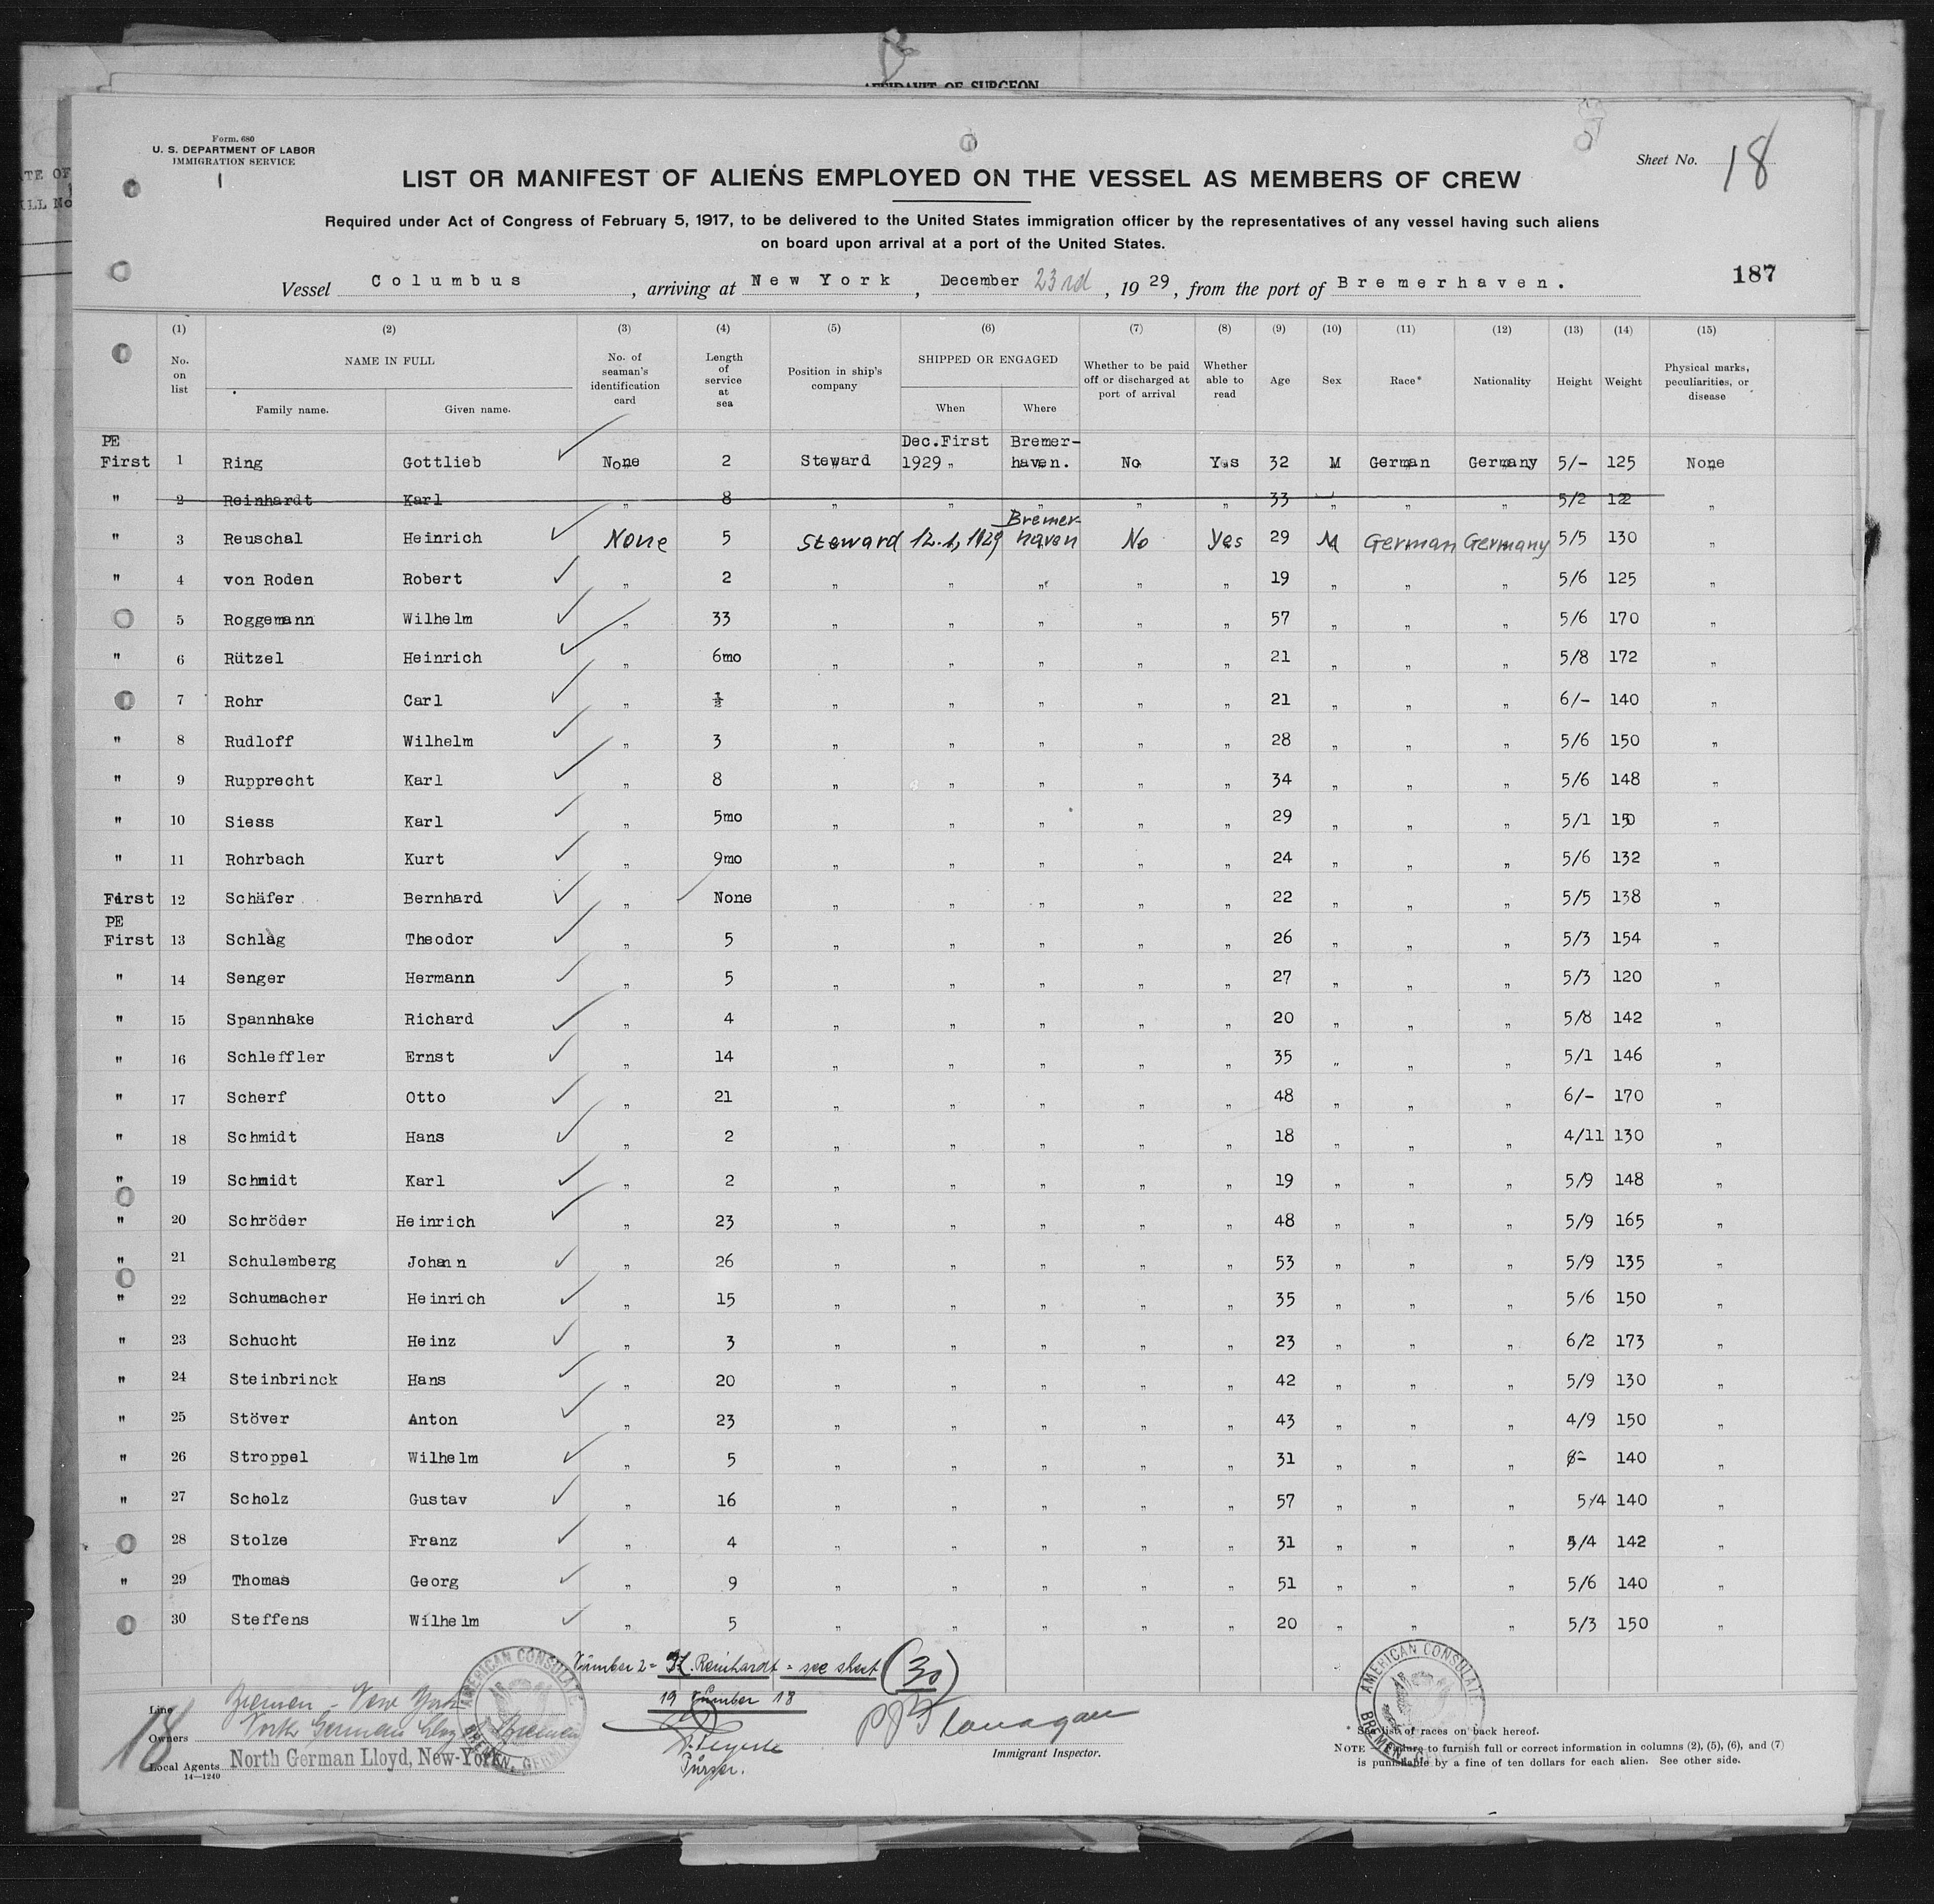 AFFIDAVIT OF SURGEON
Form. 680
U. S. DEPARTMENT OF LABOR
IMMIGRATION SERVICE
Sheet No. 18
LIST OR MANIFEST OF ALIENS EMPLOYED ON THE VESSEL AS MEMBERS OF CREW
Required under Act of Congress of February 5, 1917, to be delivered to the United States immigration officer by the representatives of any vessel having such aliens
on board upon arrival at a port of the United States.
187
Vessel Columbus, arriving at New York, December 23rd, 1929, from the port of Bremerhaven.
(1) (2) (3) (4) (5) (6) (7) (8) (9) (10) (11) (12) (13) (14) (15)
No. on list NAME IN FULL Family name. Given name. No. of seaman's identification card Length of service at sea Position in ship's company SHIPPED OR ENGAGED When Where Whether to be paid off or discharged at port of arrival Whether able to read Age Sex Race* Nationality Height Weight Physical marks, peculiarities, or disease
PE Dec.First Bremer-
First 1 Ring Gottlieb None 2 Steward 1929 " haven. No Yes 32 M German Germany 5/- 125 None
" 2 Reinhardt Karl " 8 " " " " " 33 " " " 5/2 122 "
" 3 Reuschal Heinrich None 5 Steward 12.1,1929 Bremerhaven No Yes 29 M German Germany 5/5 130 "
" 4 von Roden Robert " 2 " " " " " 19 " " " 5/6 125 "
5 Roggemann Wilhelm " 33 " " " " " 57 " " " 5/6 170 "
" 6 Rützel Heinrich " 6mo " " " " " 21 " " " 5/8 172 "
7 Rohr Carl " ½ " " " " " 21 " " " 6/- 140 "
" 8 Rudloff Wilhelm " 3 " " " " " 28 " " " 5/6 150 "
" 9 Rupprecht Karl " 8 " " " " " 34 " " " 5/6 148 "
" 10 Siess Karl " 5mo " " " " " 29 " " " 5/1 150 "
" 11 Rohrbach Kurt " 9mo " " " " " 24 " " " 5/6 132 "
First 12 Schäfer Bernhard " None " " " " " 22 " " " 5/5 138 "
PE
First 13 Schlag Theodor " 5 " " " " " 26 " " " 5/3 154 "
" 14 Senger Hermann " 5 " " " " " 27 " " " 5/3 120 "
" 15 Spannhake Richard " 4 " " " " " 20 " " " 5/8 142 "
" 16 Schleffler Ernst " 14 " " " " " 35 " " " 5/1 146 "
" 17 Scherf Otto " 21 " " " " " 48 " " " 6/- 170 "
" 18 Schmidt Hans " 2 " " " " " 18 " " " 4/11 130 "
" 19 Schmidt Karl " 2 " " " " " 19 " " " 5/9 148 "
" 20 Schröder Heinrich " 23 " " " " " 48 " " " 5/9 165 "
" 21 Schulemberg Johann " 26 " " " " " 53 " " " 5/9 135 "
" 22 Schumacher Heinrich " 15 " " " " " 35 " " " 5/6 150 "
" 23 Schucht Heinz " 3 " " " " " 23 " " " 6/2 173 "
" 24 Steinbrinck Hans " 20 " " " " " 42 " " " 5/9 130 "
" 25 Stöver Anton " 23 " " " " " 43 " " " 4/9 150 "
" 26 Stroppel Wilhelm " 5 " " " " " 31 " " " 140 "
" 27 Scholz Gustav " 16 " " " " " 57 " " " 5/4 140 "
28 Stolze Franz " 4 " " " " " 31 " " " 5/4 142 "
" 29 Thomas Georg " 9 " " " " " 51 " " " 5/6 140 "
30 Steffens Wilhelm " 5 " " " " " 20 " " " 5/3 150 "
Number 2 = K. Reinhardt = see sheet (30)
19 Number 18
AMERICAN CONSULATE BREMEN, GERMANY
AMERICAN CONSULATE BREMEN, GERMANY
18
Line Bremen - New York
Owners North German Lloyd Bremen
Local Agents North German Lloyd, New-York.
14—1240
Purser.
PJ Flanagan
Immigrant Inspector.
* See list of races on back hereof.
NOTE.—Failure to furnish full or correct information in columns (2), (5), (6), and (7)
is punishable by a fine of ten dollars for each alien. See other side.